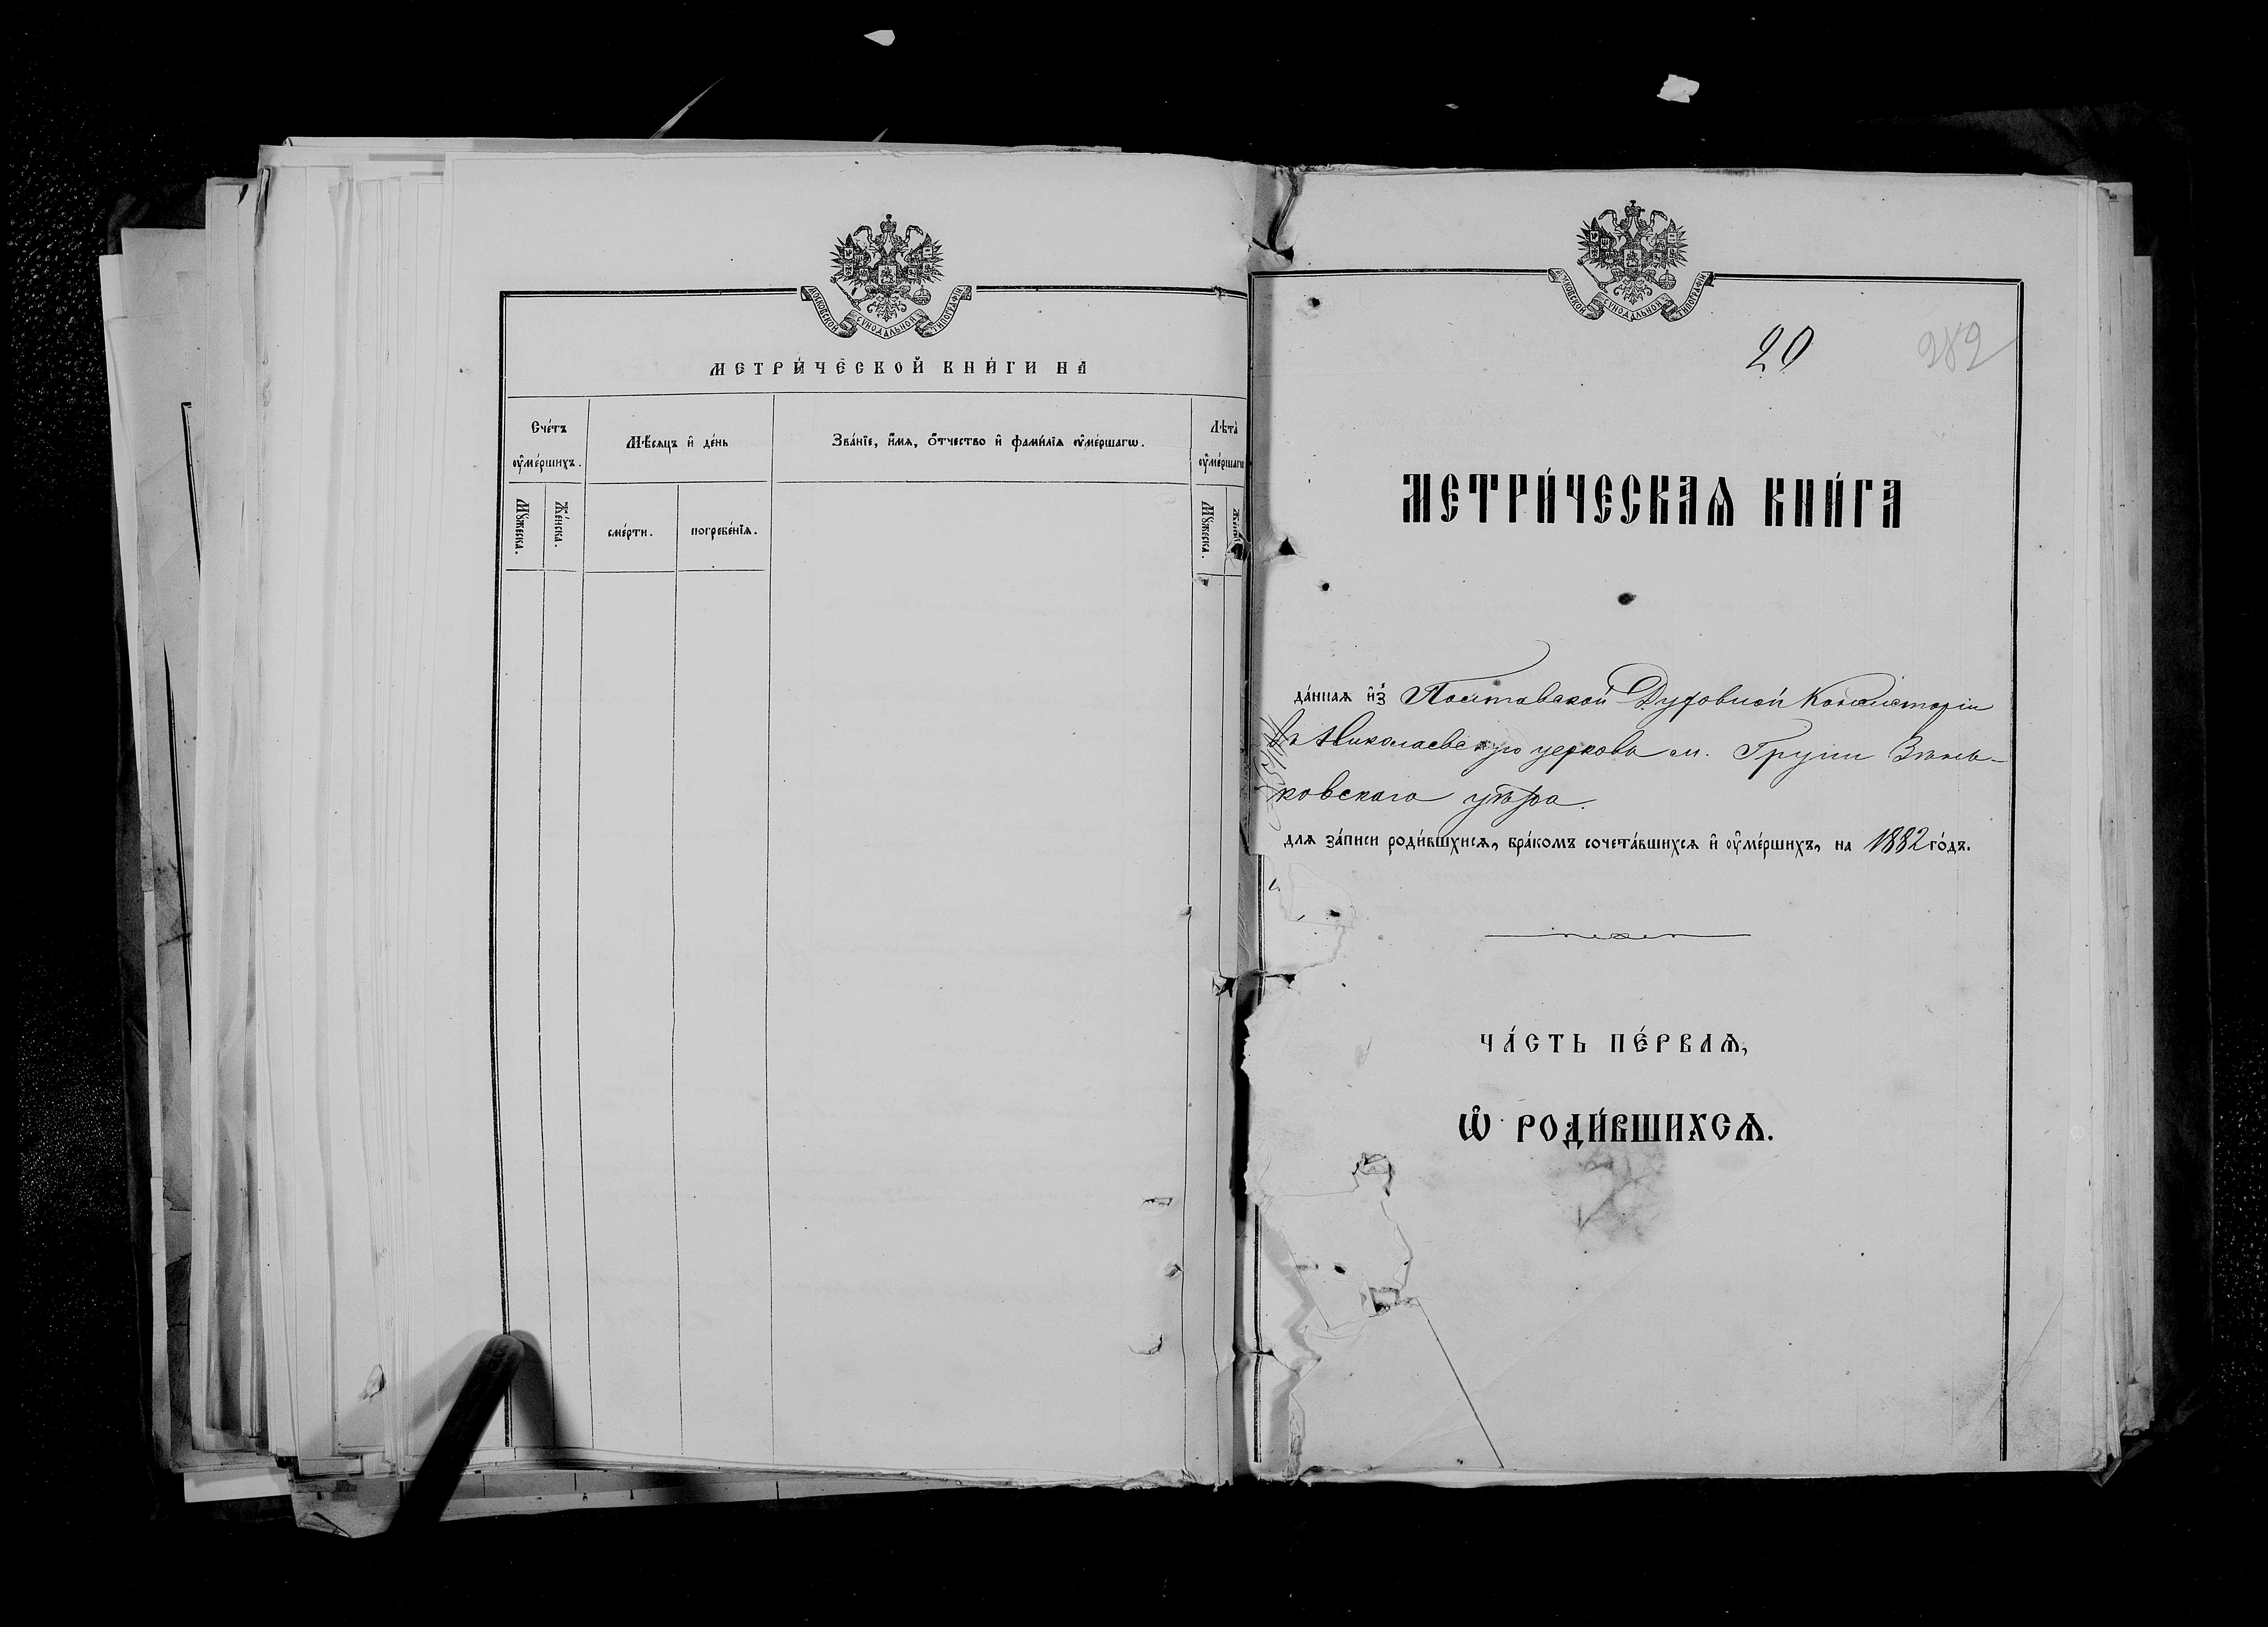 МОСКОВСКОЙ СѴНОДАЛЬНОЙ ТИПОГРАФІИ
МЕТРИ́ЧЕСКОЙ КНИ́ГИ НА
Сче́тъ
ᲂу҆ме́ршихъ.
Мꙋ́жеска.
Же́нска.
Мѣ́сяцъ и҆ де́нь
сме́рти.
погребе́нїѧ.
Зва́нїе, и҆́мѧ, ѻ҆́тчество и҆ фами́лїѧ ᲂу҆ме́ршагѡ.
Лѣта̀
ᲂу҆ме́ршагѡ
Мꙋ́жеска.
Же́нска
МОСКОВСКОЙ СѴНОДАЛЬНОЙ ТИПОГРАФІИ
20
282
МЕТРИ́ЧЕСКАѦ КНИ́ГА
да́ннаѧ и҆з̾ Полтавской Духовной Консисторіи
въ Николаевскую церковь м. Груни Зѣнь-
ковскаго уѣзда.
длѧ за́писи роди́вшхисѧ, бра́комъ сочета́вшихсѧ и҆ ᲂу҆ме́ршихъ, на 1882 го́дъ.
ЧА́СТЬ ПЕ́РВАѦ,
Ѡ҆ РОДИ́ВШИХСѦ.